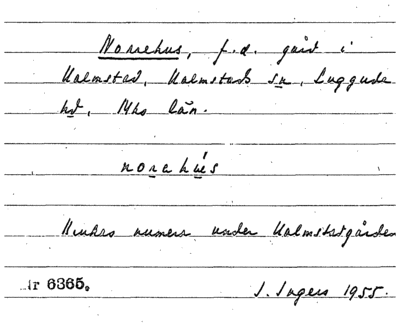 Norrehus, f.d. gård i
Halmstad, Halmstads sn, Luggude
hd, Mhs län.
norahus
Brukas numera under Halmstadgården
nr 6365.
I. Ingers 1955.